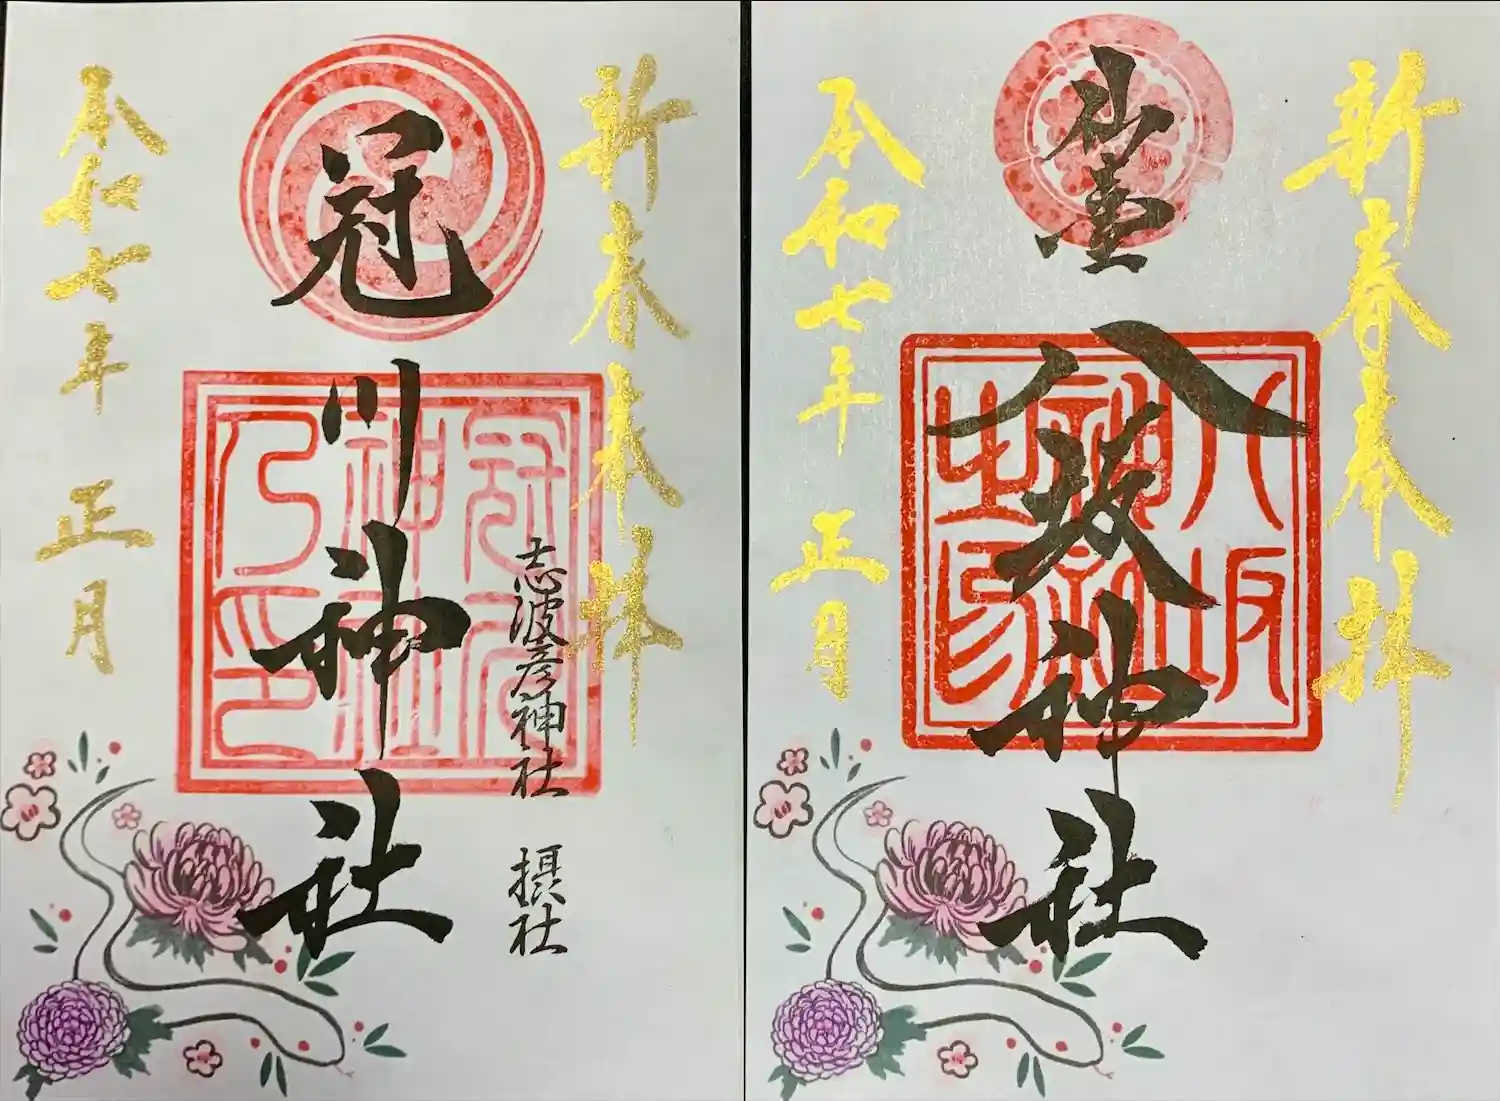 新春奉拝
志波彦神社 摂社
冠川神社
冠川
神社
乃印
令和七年 正月
新春奉拝
仙臺
八坂神社
八坂
神社
之印
令和七年 正月